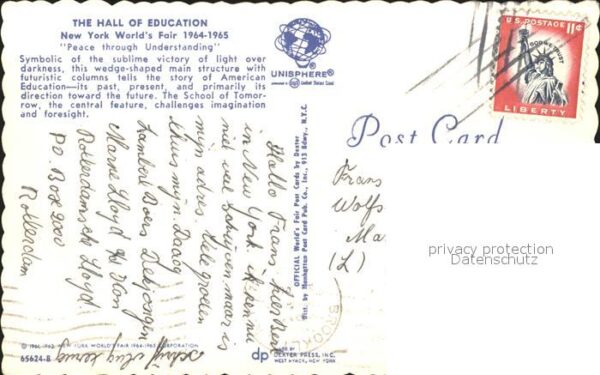 THE HALL OF EDUCATION
New York World's Fair 1964-1965
"Peace through Understanding"
Symbolic of the sublime victory of light over
darkness, this wedge-shaped main structure with
futuristic columns tells the story of American
Education—its past, present, and primarily its
direction toward the future. The School of Tomor-
row, the central feature, challenges imagination
and foresight.
UNISPHERE®
U.S. POSTAGE 11¢
IN GOD WE TRUST
LIBERTY
Post Card
OFFICIAL World's Fair Post Cards by Dexter
Dist. by Manhattan Post Card Pub. Co., Inc., 913 Bdwy., N.Y.C.
Hallo Frans, hier ben ik
in New York. Ik ben nu
niet veel schrijven maar is
mijn adres. Vele groeten
thuis mijn
Lambert Boers
Marne Lloyd
Rotterdamsche Lloyd
P.O. Box 2000
Rotterdam
schrijf vlug terug
Frans
Wolfs
Ma
(L)
privacy protection
Datenschutz
BROOKL
© 1961, 1962, NEW YORK WORLD'S FAIR 1964-1965 CORPORATION
65624-B
dp
MADE BY
DEXTER PRESS, INC.
WEST NYACK, NEW YORK